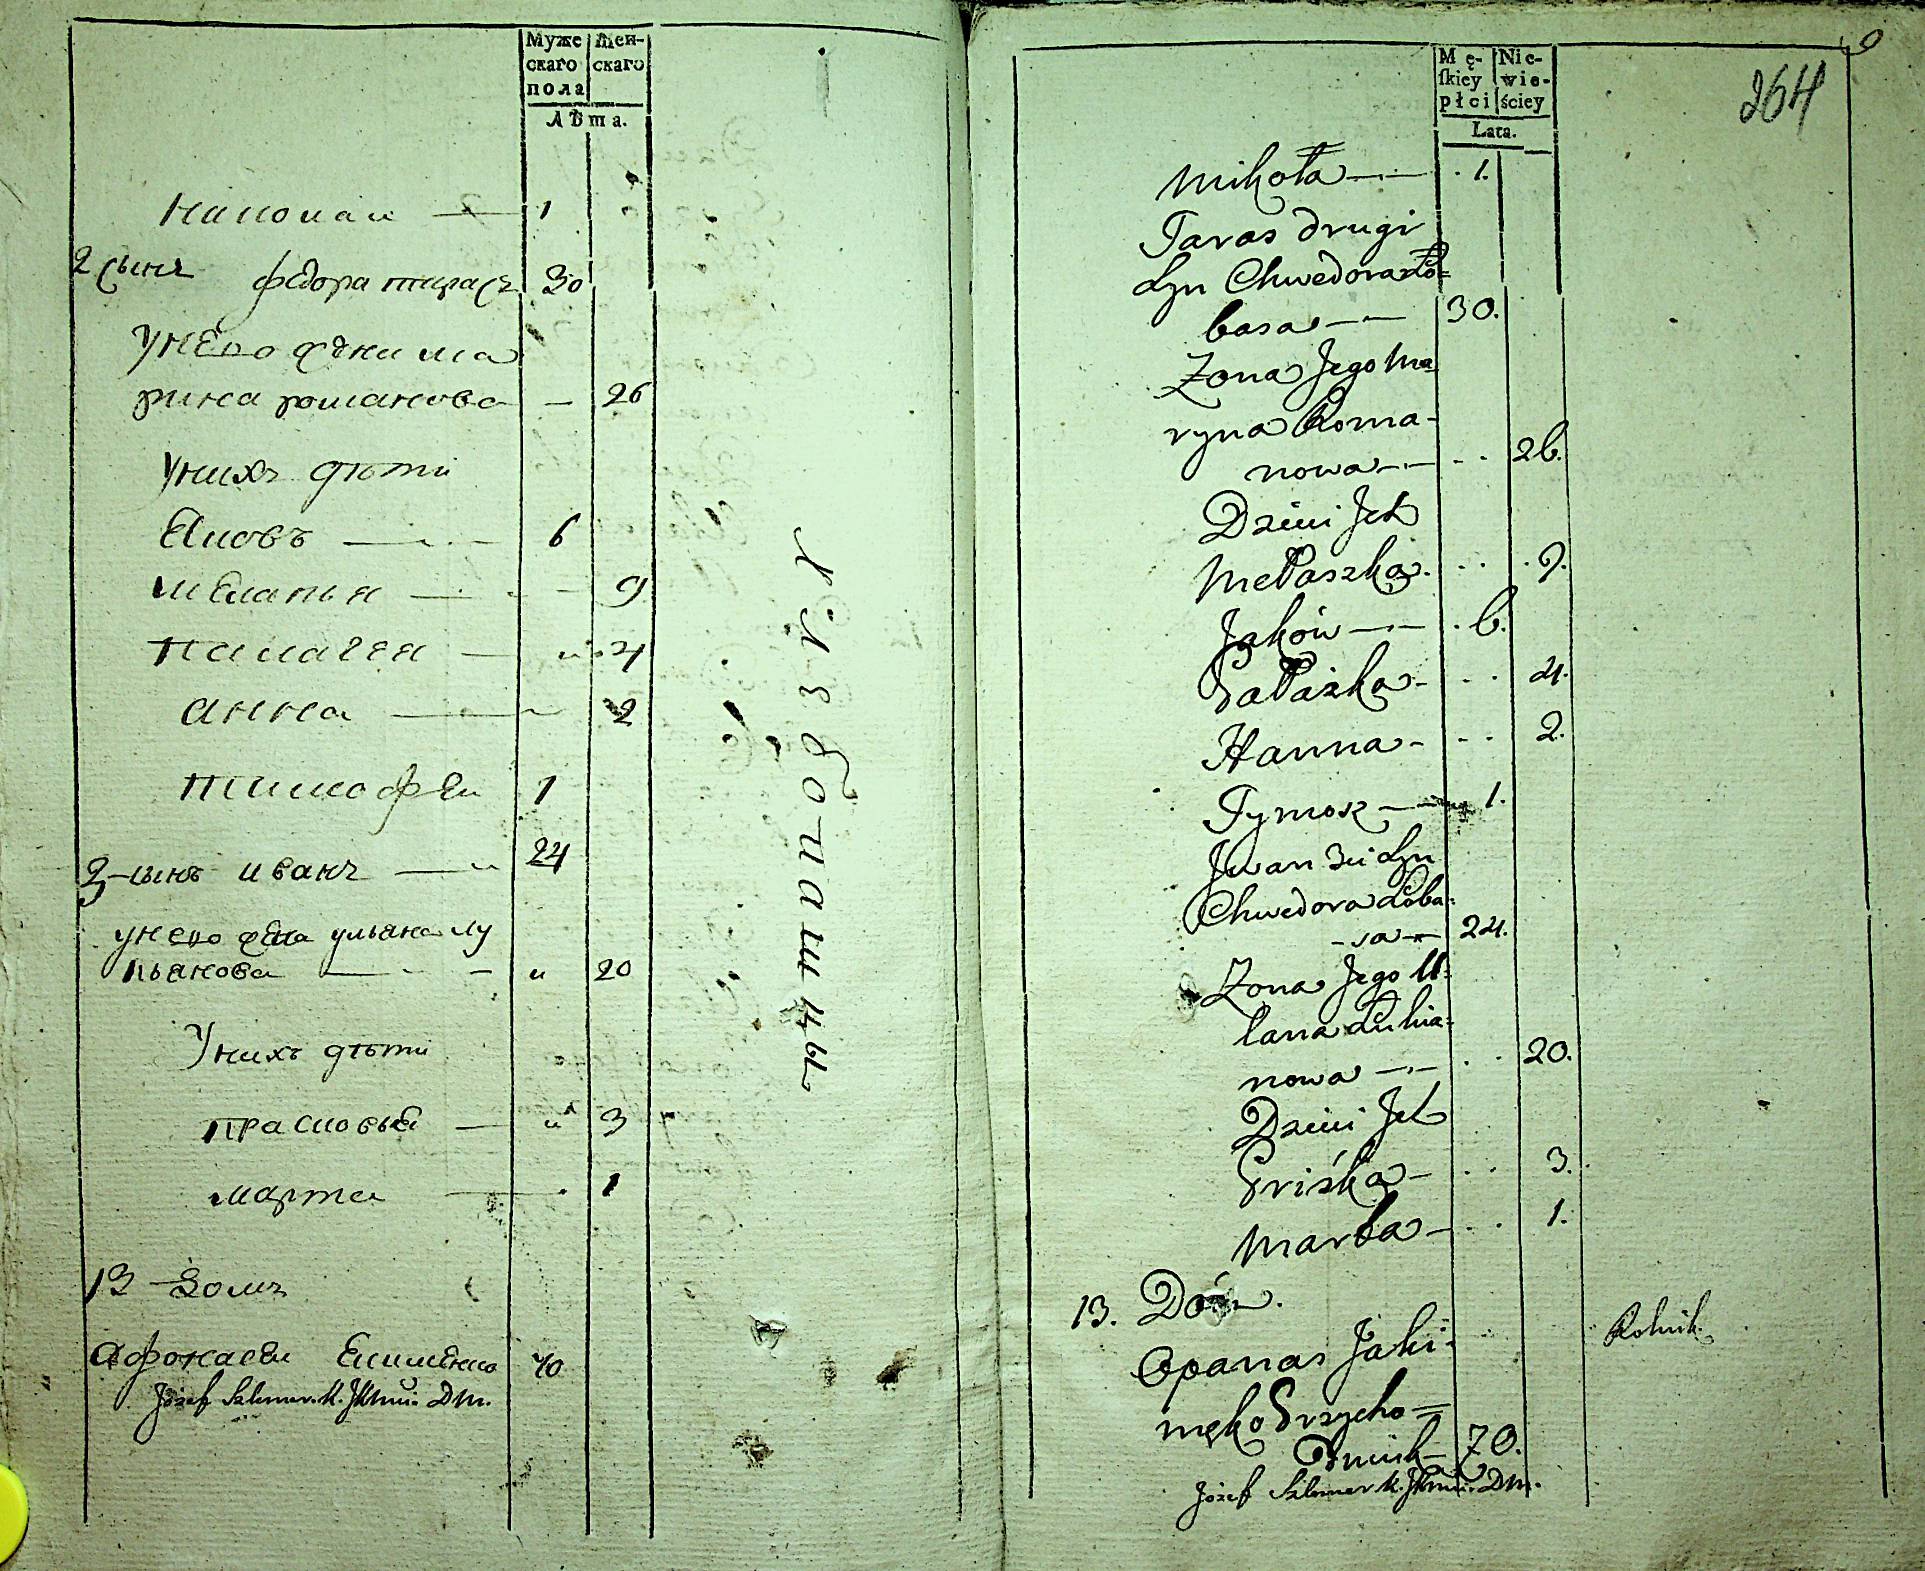 Муже
скаго
пола
Жен-
скаго
Лѣта.
Николаи — 1
2 сынъ Федора тарасъ 30
У него жена ма
рина романова — 26
У нихъ дѣти
Яковъ — 6
Меланья — 9
Палагея — 4
Анна — 2
Тимофеи 1
3 сынъ иванъ — 24
у него жена ульяна лу
кьянова — 20
У нихъ дѣти
Прасковья — 3
марта — 1
13 домъ
Афонасеи Екименко 70
Józef
хлѣбопашцы
9
264
Mę-
ſkiey
płci
Nie-
wie-
ściey
Lata.
Mikoła — 1.
Taras drugi
Syn Chwedora Ło=
basa — 30.
Zona Jego Ma=
ryna Roma-
nowa — 26.
Dzieci Ich
Mełaszka. 9.
Jaków — 6.
Pałażka - 4.
Hanna - 2.
Tymosz — 1.
Jwan 3ci Syn
Chwedora Łoba=
-sa — 24.
Zona Jego U=
lana Łukia=
nowa — 20.
Dzieci Ich
Priśka - 3.
Marta - 1.
13. Dóm.
Opanas Jaki=
męko Przycho=
dnik 70.
Rolnik.
Józef